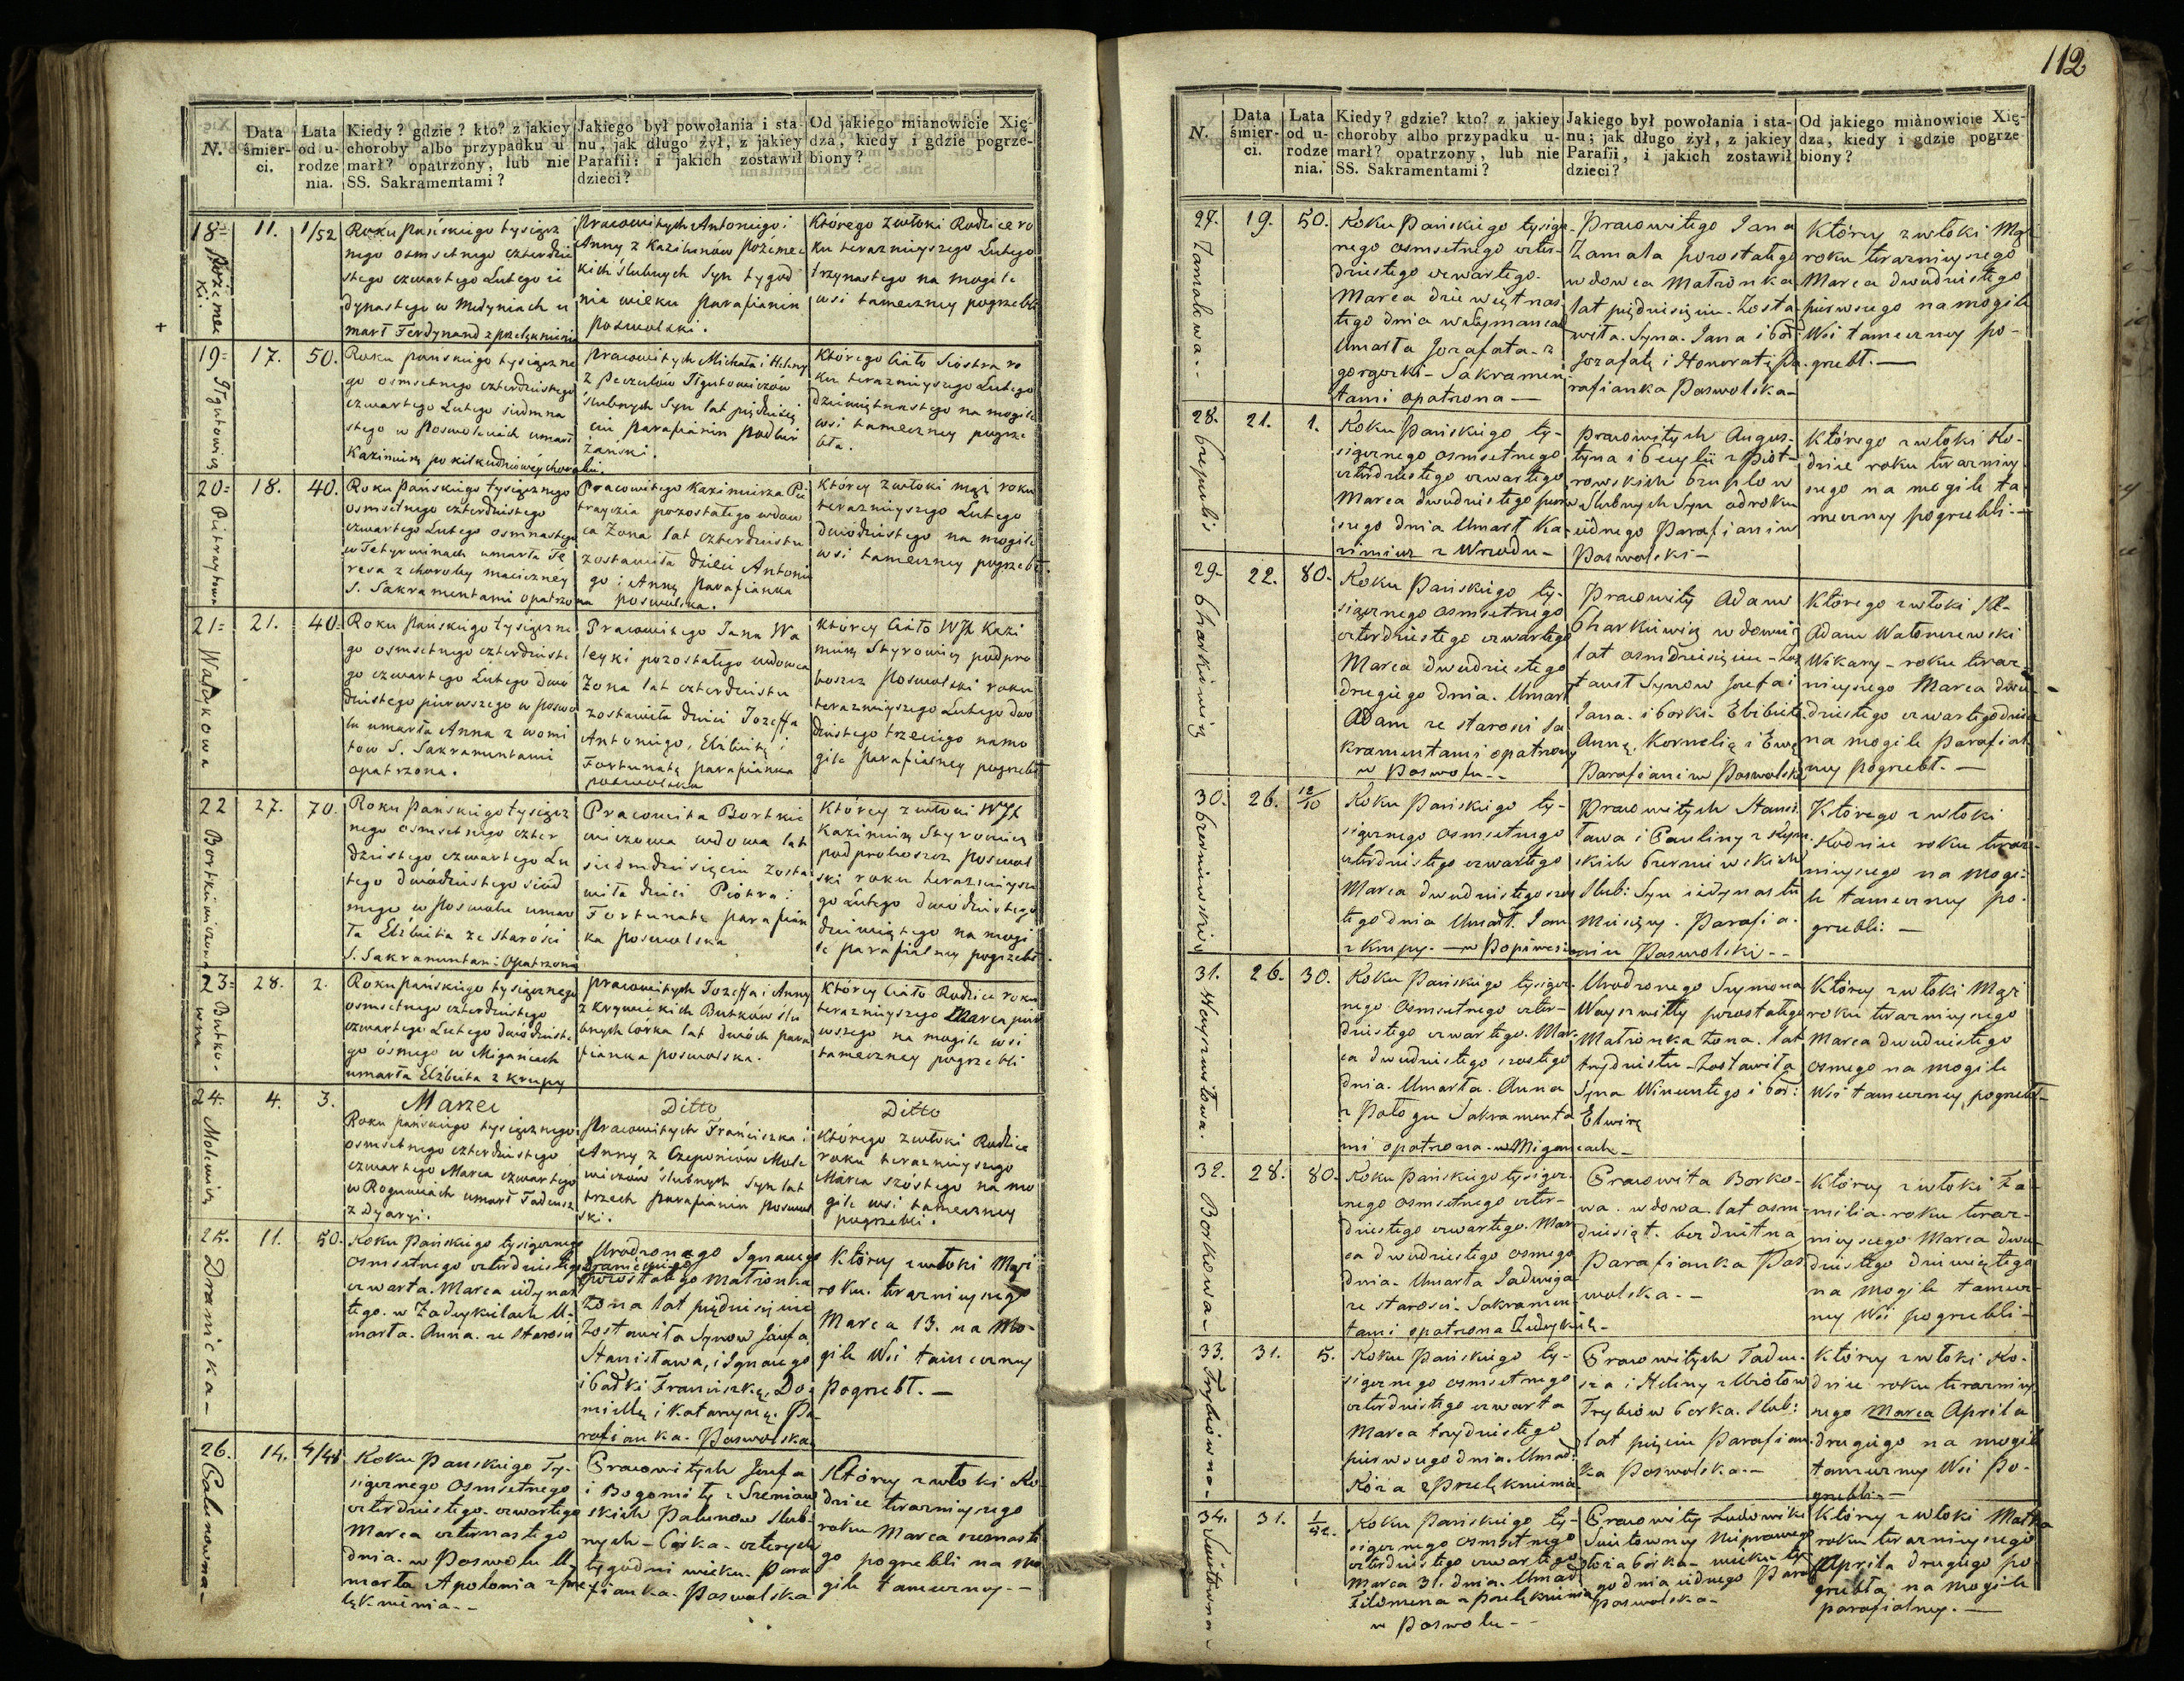 112
N.
Data śmier-ci.
Lata od u-rodze nia.
Kiedy? gdzie? kto? z jakiey
choroby albo przypadku u
marł? opatrzony, lub nie
SS. Sakramentami?
Jakiego był powołania i sta-
nu, jak długo żył, z jakiey
Parafii: i jakich zostawił
dzieci?
Od jakiego mianowicie Xię-
dza, kiedy i gdzie pogrze-
biony?
18
11.
1/52
Roku Pańskiego tysiącz
nego osmsetnego czterdzie
stego czwartego Lutego ie
dynastego w Medyniach u
marł Ferdynand z przelęknienia
Pracowitych Antoniego i
Anny z Kazibunów Pozemec
kich ślubnych Syn tygod
nia wieku Parafianin
Poswolski.
Którego zwłoki Rodzice ro
ku teraznieyszego Lutego
trzynastego na mogile
wsi tameczney pogrzebli
19
Jgutowicz
17.
50.
Roku Pańskiego tysiączne
go osmsetnego czterdziestego
czwartego Lutego siedmna
stego w umarł
Kazimierz po kilkudniowey chorobie.
Pracowitych Michała i Heleny
z Peczulów Jgutowiczów
ślubnych Syn lat pięćdziesię
ciu parafianin Podbir
żanski.
Którego Ciało Siostra ro
ku teraznieyszego Lutego
dziewiętnastego na mogile
wsi tameczney pogrze
bła.
20
Pietraytowa
18.
40.
Roku Pańskiego tysiącznego
osmsetnego czterdziestego
czwartego Lutego osmnastego
w Tetyrwinach umarła Te
resa z choroby maciczney
S. Sakramentami opatrzona
Pracowitego Kazimierza Pie
traycia pozostałego wdow
ca Żona lat czterdziestu
zostawiła dzieci Antonie
go i Annę Parafianka
Poswolska.
Którey zwłoki mąż roku
teraznieyszego Lutego
dwódziestego na mogile
wsi tameczney pogrzebł.
21
Waleykowa
21.
40.
Roku Pańskiego tysiączne
go osmsetnego czterdzieste
go czwartego Lutego dwó
dziestego pierwszego w Poswo
lu umarła Anna z womi
tow S. Sakramentami
opatrzona.
Pracowitego Jana Wa
leyki pozostałego wdowca
Żona lat czterdziestu
zostawiła dzieci Jozeffa
Antoniego, Elżbietę i
Fortunatę parafianka
poswolska
Którey Ciało WJX Kazi
mierz Styrowicz podpro
boszcz Poswolski roku
terazneyszego Lutego dwó
dziestego trzeciego na mo
gile parafialney pogrzebł
22
Bortkiewiczowa
27.
70.
Roku Pańskiego tysiącz
nego osmsetnego czter
dziestego czwartego Lu
tego dwódziestego siód
mego w Poswolu umar
ła Elżbieta ze starości
S. Sakramentami Opatrzona
Pracowita Bortkie
wiczowa wdowa lat
siedmdziesięciu zosta
wiła dzieci Piotra i
Fortunatę parafian
ka poswolska
Którey zwłoki WJX
Kazimierz Styrowicz
podproboszcz poswol
ski roku teraznieysze
go Lutego dwódziestego
dziewiątego na mogi
le parafialney pogrzebł.
23
Butko-
wna
28.
2.
Roku Pańskiego tysiącznego
osmsetnego czterdziestego
czwartego Lutego dwódzieste
go osmego w Migańcach
umarła Elżbieta z krupy
Pracowitych Jozeffa i Anny
z Krywickich Butków ślu
bnych Córka lat dwóch para
fianka poswolska.
Którey Ciało Rodzice roku
terazneyszego Marca pier
wszego na mogile wsi
tameczney pogrzebli
24
Molewicz
4.
3.
Marzec
Roku Pańskiego tysiącznego
osmsetnego czterdziestego
czwartego Marca czwartego
w umarł Tadeusz
z dyaryi.
Ditto
Pracowitych Franciszka i
Anny z Czeponiów Mole
wiczów ślubnych Syn lat
trzech parafianin poswol
ski.
Ditto
Którego zwłoki Rodzice
roku teraznieyszego
Marca szóstego na mo
gile wsi tameczney
pogrzebli.
25.
Dranicka
11.
50.
Roku Pańskiego tysiącznego
osmsetnego czterdziestego
czwarta. Marca iedynas
tego. w Zadeykielach U-
marła. Anna. ze Starości
Urodzonego Ignacego
Dranickiego
pozostałego Małżonka
Żona lat pięćdziesięciu
Zostawiła Synow Jozefa
Stanisława, i Ignacego
i Corki Franciszkę, Do-
micellę i Katarzynę. Pa-
rafianka. Poswolska
Którey zwłoki Mąż
roku. teraznieyszego
Marca 13. na Mo-
gile Wsi tameczney
Pogrzebł. —
26.
Palunowna
14.
4/48
Roku Panskiego Ty-
siącznego Osmsetnego
czterdziestego. czwartego
Marca czternastego
dnia. w Poswolu U-
marła Apolonia z prze
lęknienia. -
Pracowitych Jozefa
i Bogomiły z Szeniaw
skich Palunow Slub-
nych - Córka - czterych
tygodni wieku. Para
fianka. Poswolska
Którey zwłoki Ro-
dzice teraznieyszego
roku Marca szesnaste
go pogrzebli na Mo
gile tameczney. -
N.
Data śmier-ci.
Lata od u-rodze nia.
Kiedy? gdzie? kto? z jakiey
choroby albo przypadku u-
marł? opatrzony, lub nie
SS. Sakramentami?
Jakiego był powołania i sta-
nu; jak długo żył, z jakiey
Parafii, i jakich zostawił
dzieci?
Od jakiego mianowicie Xię-
dza, kiedy i gdzie pogrze-
biony?
27.
Zamałowa.
19.
50.
Roku Pańskiego tysiącz-
nego osmsetnego czter-
dziestego czwartego.
Marca dziewiętnas
tego dnia w
Umarła Jozafata. z
gorączki - Sakramen
tami opatrzona —
Pracowitego Jana
Zamała pozostałego
wdowca Małżonka
lat pięćdziesięciu. Zosta
wiła. Syna. Jana i Cor
Jozafatę i Honoratę Pa-
rafianka Poswolska
Którey zwłoki Mąż
roku teraznieyszego
Marca dwudziestego
pierwszego na mogile
Wsi tameczney po-
grzebł. —
28.
21.
1.
Roku Pańskiego ty-
siącznego osmsetnego
czterdziestego czwartego
Marca dwudziestego pierw
szego dnia Umarł Ka-
zimierz z Wrzodu -
Pracowitych Augus-
tyna i Cecylii z Piot-
rowskich
Slubnych Syn od roku
iednego Parafianin
Poswolski —
Którego zwłoki Ro-
dzice roku terazniey
szego na mogile ta-
meczney pogrzebli. —
29.
Charkiewicz
22.
80.
Roku Pańskiego ty-
siącznego osmsetnego
czterdziestego czwartego
Marca dwudziestego
drugiego dnia. Umarł
Adam ze starosci Sa
kramentami opatrzony
w Poswolu. -
Pracowity Adam
Charkiewicz wdowiec
lat osmdziesięciu - Zos
tawił Synow Jozefa i
Jana. i Corki. Elżbietę
Annę, Kornelię i Ewę
Parafianin Poswolski
Którego zwłoki JX.
Adam Watonczewski
Wikary - roku teraz-
nieyszego Marca dwu-
dziestego czwartego dnia
na mogile Parafial
ney pogrzebł. —
30.
Czerniewski
26.
12/10
Roku Pańskiego ty-
siącznego osmsetnego
czterdziestego czwartego
Marca dwudziestego szos
tego dnia Umarł. Jan
z krupy. — w
Pracowitych Stanis
ława i Pauliny z
skich Czerniewskich
Slub: Syn iedynastu
Miesięcy. Parafia-
nin Poswolski. -
Którego zwłoki
Rodzice roku teraz-
nieyszego na mogi-
le tameczney po-
grzebli. —
31.
Woyszwiłowa.
26.
30.
Roku Pańskiego tysiącz-
nego Osmsetnego czter-
dziestego czwartego. Mar-
ca dwudziestego szostego
dnia. Umarła. Anna
z Połogu Sakramenta
mi opatrzona. w Migancach -
Urodzonego Szymona
Woyszwiłły pozostałego
Małżonka Żona. lat
trzydziestu - Zostawiła
Syna Wincentego i Cor:
Elwirę
Którey zwłoki Mąż
roku teraznieyszego
Marca dwudziestego
osmego na mogile
Wsi tameczney pogrzebł -
32.
Borkowa
28.
80.
Roku Pańskiego tysiącz-
nego osmsetnego czter-
dziestego czwartego. Mar
ca dwudziestego osmego
dnia. Umarła Jadwiga
ze starosci. Sakramen-
tami opatrzona
Pracowita Borko-
wa. wdowa. lat osm-
dziesiąt. bezdzietna
Parafianka Pos
wolska. -
Którey zwłoki Fa-
milia. roku teraz-
nieyszego Marca dwu-
dziestego dziewiątego
na mogile tamecz-
ney Wsi pogrzebli -
33.
Trybiowna
31.
5.
Roku Pańskiego ty-
siącznego osmsetnego
czterdziestego czwarta
Marca trzydziestego
pierwszego dnia. Umar:
Róża z Przelęknienia
Pracowitych Tadeu-
sza i Heleny z
Trybiow Corka. Slub:
lat pięciu Parafian-
ka Poswolska. —
Którey zwłoki Ro-
dzice roku teraznieysz
nego Marca Aprila
drugiego na mogile
tameczney Wsi Po-
grzebli —
34.
31.
1/52.
Roku Pańskiego ty-
siącznego osmsetnego
czterdziestego czwartego
Marca 31. dnia. Umar:
Filomena z przelęknienia
w Poswolu -
Pracowity Ludowiki
Nieprawego
łoża Córka - wieku ty
godnia iednego Paraf
Poswolska -
Którey zwłoki Matka
roku teraznieyszego
Aprila drugiego po
grzebła na mogile
parafialney. —